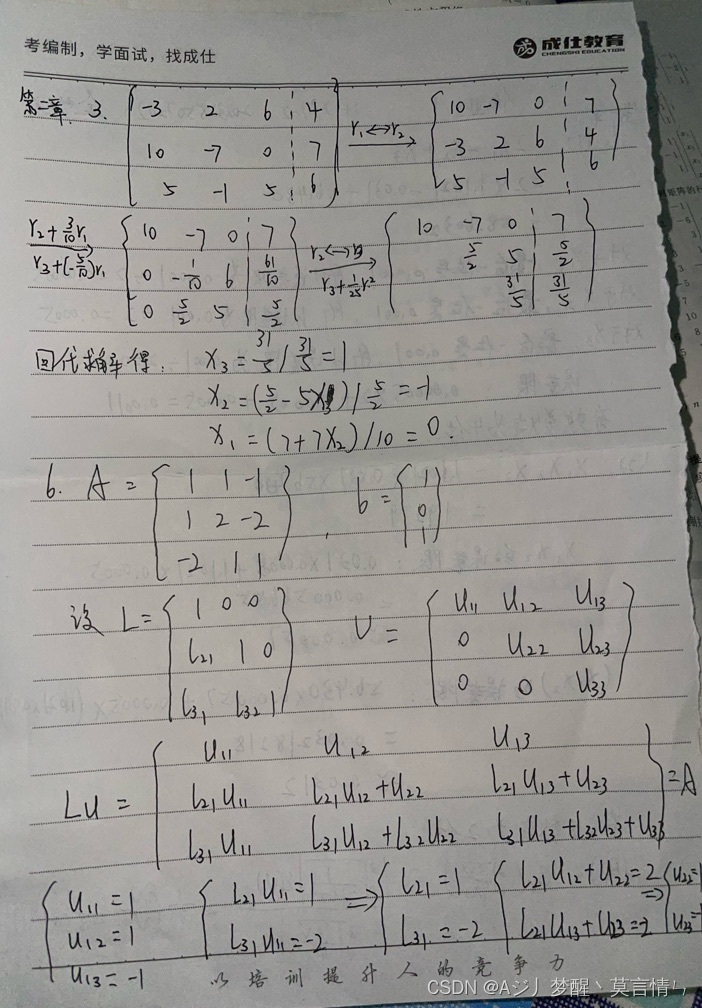 考编制，学面试，找成仕
成仕教育
CHENGSHI EDUCATION
第二章. 3. [-3 2 6 ¦ 4; 10 -7 0 ¦ 7; 5 -1 5 ¦ 6] r₁↔r₂ → [10 -7 0 ¦ 7; -3 2 6 ¦ 4; 5 -1 5 ¦ 6]
r₂+3/10 r₁ r₃+(-5/10)r₁ → [10 -7 0 ¦ 7; 0 -1/10 6 ¦ 61/10; 0 5/2 5 ¦ 5/2] r₂↔r₃ r₃+1/25 r₂ → [10 -7 0 ¦ 7; 5/2 5 ¦ 5/2; 31/5 ¦ 31/5]
回代求解得: X₃ = 31/5 / 31/5 = 1
X₂ = (5/2 - 5X₃) / 5/2 = -1
X₁ = (7+7X₂)/10 = 0.
6. A = [1 1 -1; 1 2 -2; -2 1 1] , b = [1; 0; 1]
设 L = [1 0 0; L₂₁ 1 0; L₃₁ L₃₂ 1] U = [U₁₁ U₁₂ U₁₃; 0 U₂₂ U₂₃; 0 0 U₃₃]
LU = [U₁₁ U₁₂ U₁₃; L₂₁U₁₁ L₂₁U₁₂+U₂₂ L₂₁U₁₃+U₂₃; L₃₁U₁₁ L₃₁U₁₂+L₃₂U₂₂ L₃₁U₁₃+L₃₂U₂₃+U₃₃] = A
{U₁₁=1 U₁₂=1 U₁₃=-1 {L₂₁U₁₁=1 L₃₁U₁₁=-2 ⇒ {L₂₁=1 L₃₁=-2 {L₂₁U₁₂+U₂₂=2 L₂₁U₁₃+U₂₃=-2 ⇒ {U₂₂=1 U₂₃=-1
以培训提升人的竞争力
CSDN @Aジ丿梦醒丶莫言情ㄣ